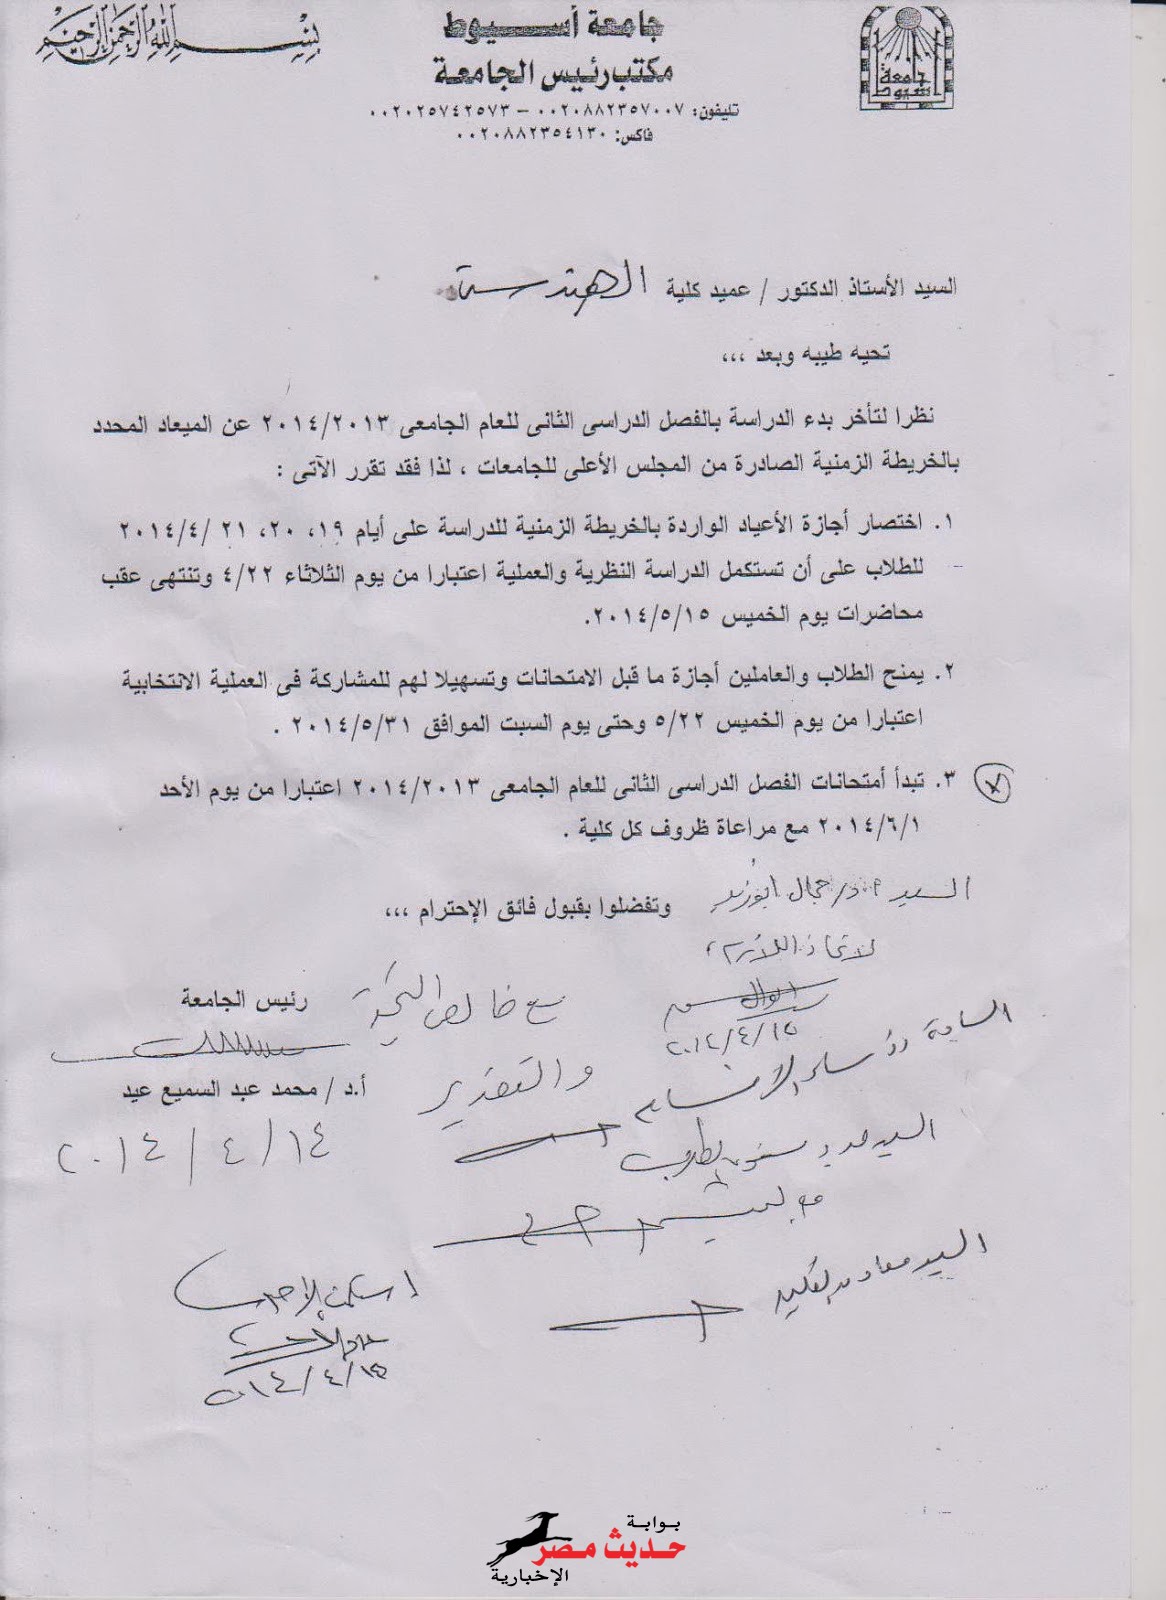 بسم الله الرحمن الرحيم
جامعة أسيوط
مكتب رئيس الجامعة
تليفون: ٠٠٢٠٨٨٢٣٥٧٠٠٧ – ٠٠٢٠٢٥٧٤٢٥٧٣
فاكس: ٠٠٢٠٨٨٢٣٥٤١٣٠
جامعة أسيوط
السيد الأستاذ الدكتور / عميد كلية الهندسة
تحيه طيبه وبعد ،،،
نظرا لتأخر بدء الدراسة بالفصل الدراسى الثانى للعام الجامعى ٢٠١٤/٢٠١٣ عن الميعاد المحدد
بالخريطة الزمنية الصادرة من المجلس الأعلى للجامعات ، لذا فقد تقرر الآتى :
١. اختصار أجازة الأعياد الواردة بالخريطة الزمنية للدراسة على أيام ١٩، ٢٠، ٢١ /٢٠١٤/٤
للطلاب على أن تستكمل الدراسة النظرية والعملية اعتبارا من يوم الثلاثاء ٤/٢٢ وتنتهى عقب
محاضرات يوم الخميس ٢٠١٤/٥/١٥.
٢. يمنح الطلاب والعاملين أجازة ما قبل الامتحانات وتسهيلا لهم للمشاركة فى العملية الانتخابية
اعتبارا من يوم الخميس ٥/٢٢ وحتى يوم السبت الموافق ٢٠١٤/٥/٣١ .
٣. تبدأ أمتحانات الفصل الدراسى الثانى للعام الجامعى ٢٠١٤/٢٠١٣ اعتبارا من يوم الأحد
٢٠١٤/٦/١ مع مراعاة ظروف كل كلية .
السيد جمال ابوزيد
وتفضلوا بقبول فائق الإحترام ،،،
لاتخاذ اللازم
مع خالص التحية
والتقدير
رئيس الجامعة
أ.د / محمد عبد السميع عيد
٢٠١٤/٤/١٤
السادة رؤساء الأقسام
السيد
٢٠١٤/٤/١٥
بوابة
حديث مصر
الإخبارية